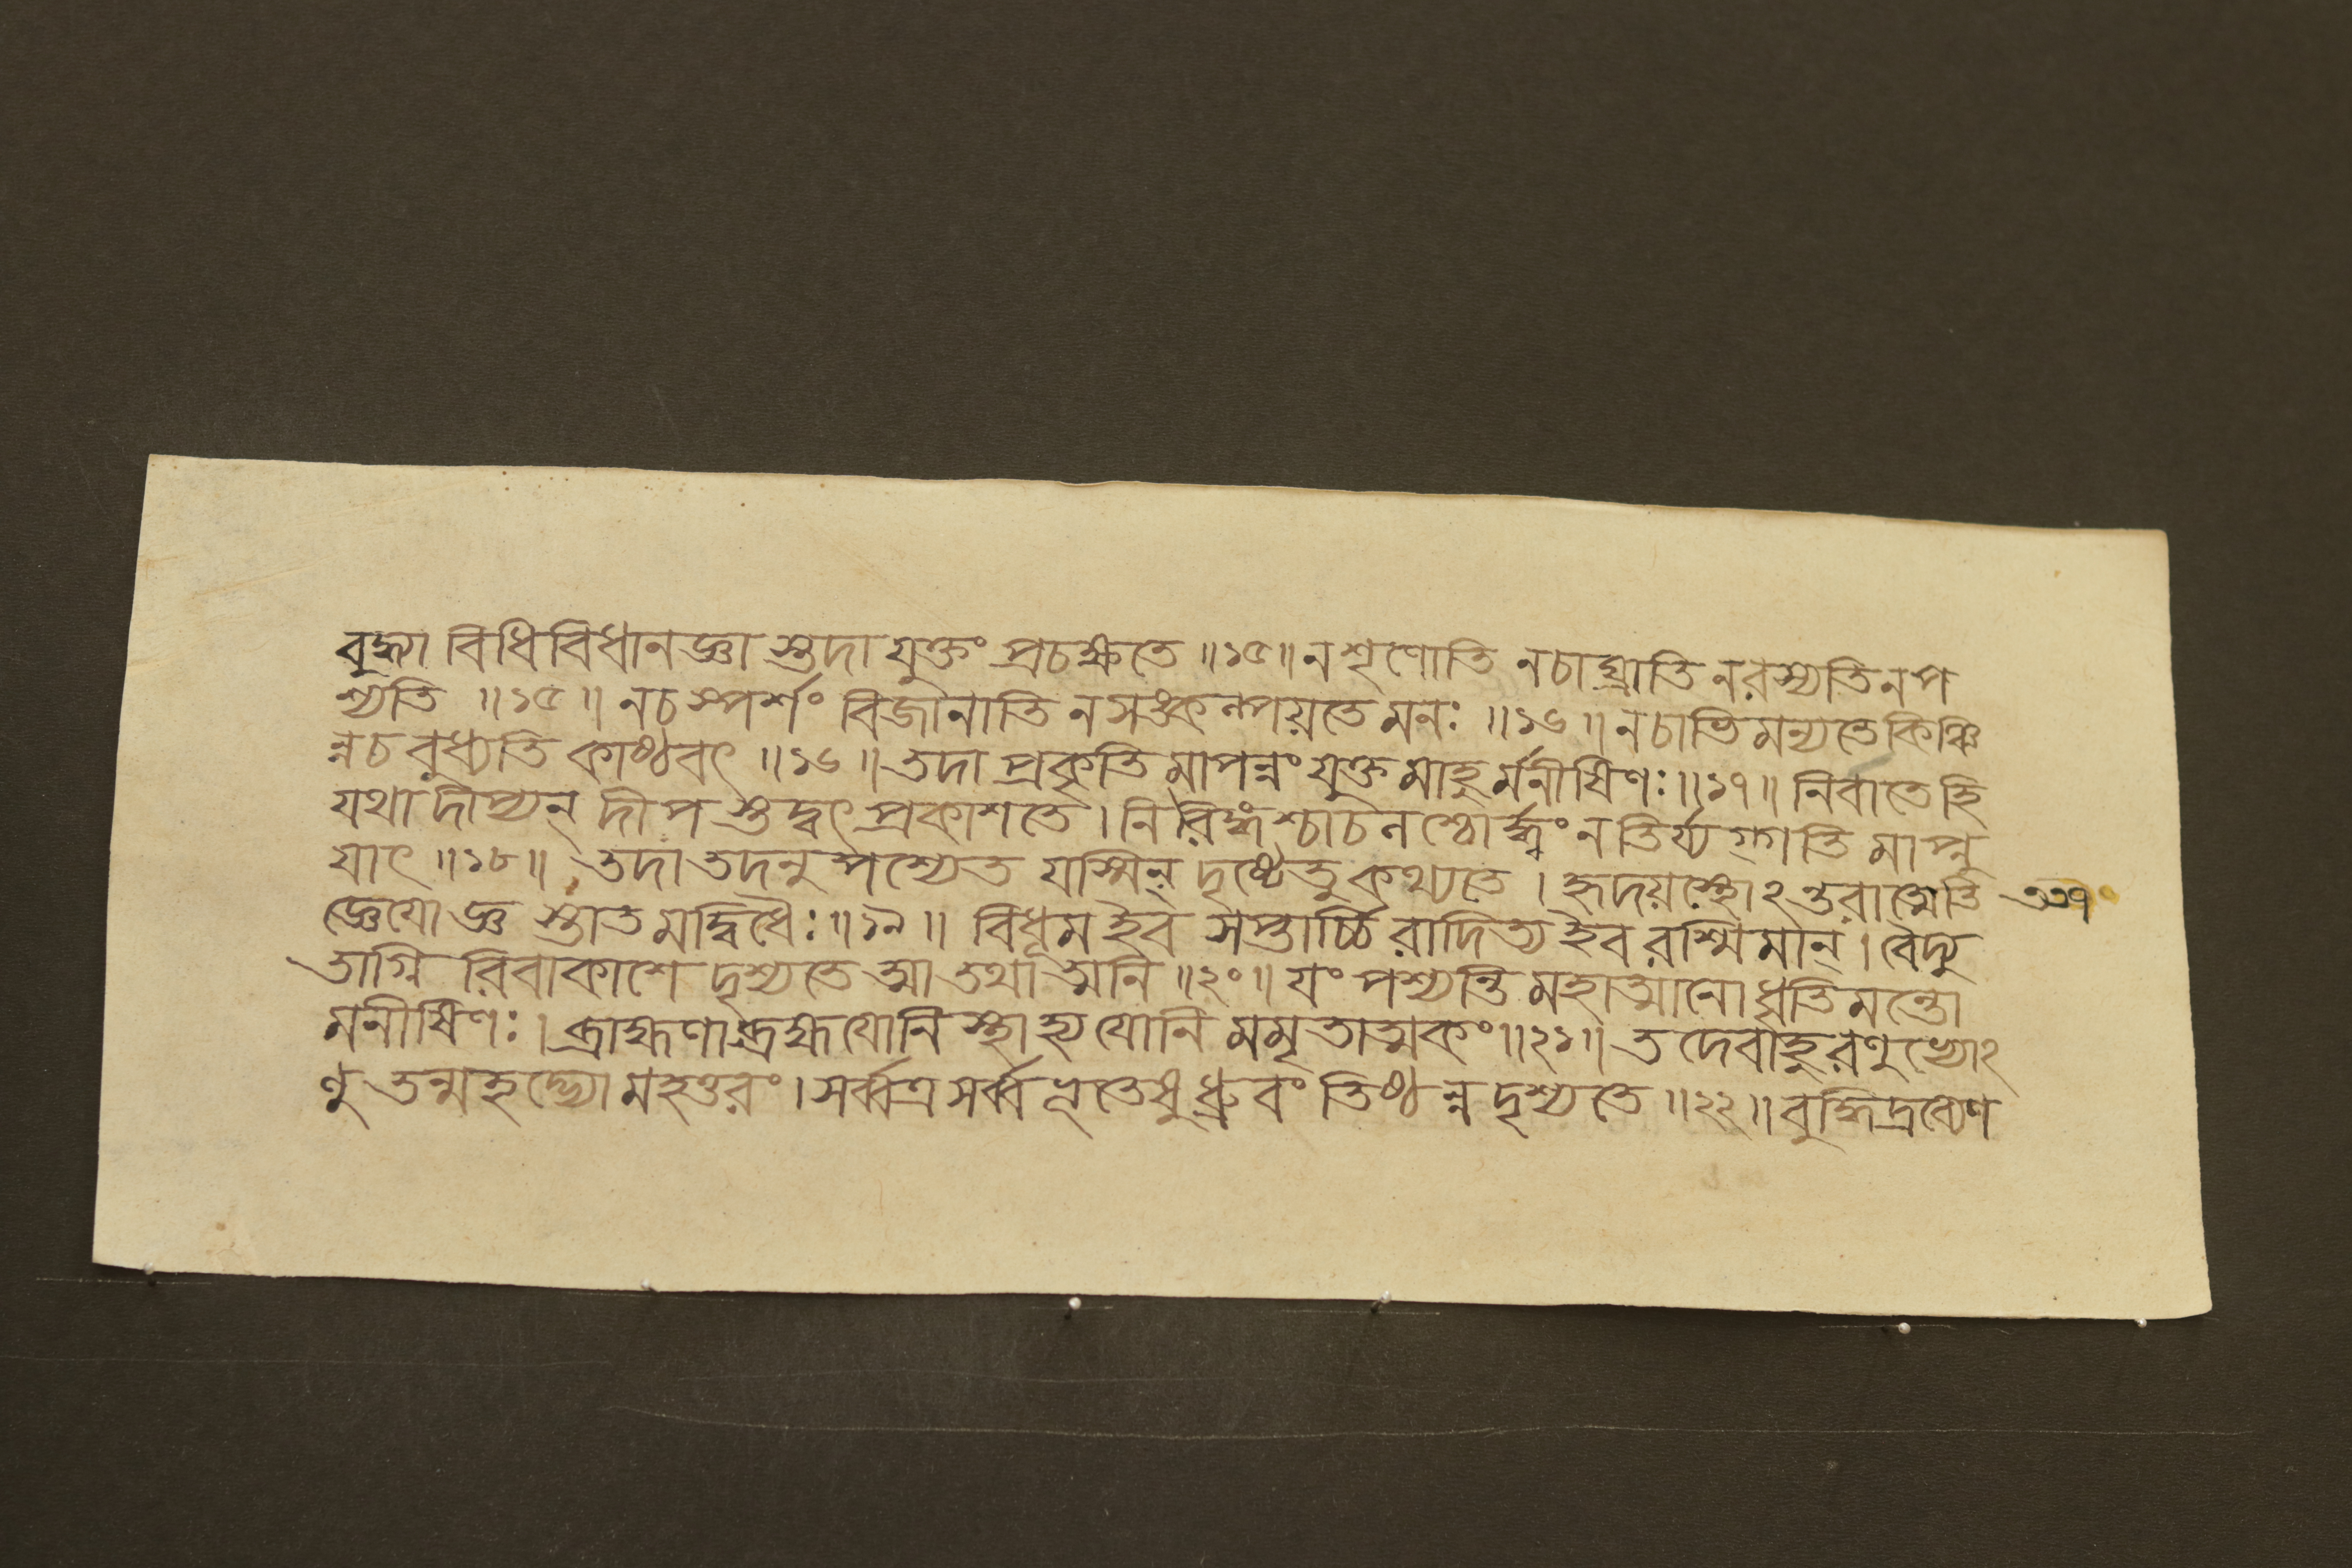 বুদ্ধ্যা বিধিবিধানজ্ঞা স্তদা যুক্তং প্রচক্ষতে ॥১৫॥ ন শৃণোতি ন চাঘ্রাতি ন রস্যতি ন প
শ্যতি ॥১৫॥ ন চ স্পর্শং বিজানাতি ন সঙ্কল্পয়তে মনঃ ॥১৬॥ ন চাভিমন্যতে কিঞ্চি
ন্ন চ বুধ্যতি কাষ্ঠবৎ ॥১৬॥ তদা প্রকৃতিমাপন্নং যুক্তমাহুর্মনীষিণঃ ॥১৭॥ নিবাতে হি
যথা দীপ্যন্ দীপ স্তদ্বৎ প্রকাশতে । নিরিঙ্গশ্চাচনশ্চোর্দ্ধ্বং ন তির্য্যগ্গতিমাপ্নু
যাৎ ॥১৮॥ তদা তদনুপশ্যেত যস্মিন্ দৃষ্টেতু কথ্যতে । হৃদয়স্থোঽন্তরাত্মেতি
জ্ঞেযো জ্ঞ স্তাত মদ্বিধৈঃ ॥১৯॥ বিধূম ইব সপ্তার্চ্চিরাদিত্য ইব রশ্মিমান্ । বৈদ্যু
তাগ্নি রিবাকাশে দৃশ্যতে আতথাত্মনি ॥২০॥ যং পশ্যন্তি মহাত্মানো ধৃতিমন্তো
মনীষিণঃ । ব্রাহ্মণা ব্রহ্মযোনিস্থা হ্যযোনি মমৃতাত্মকং ॥২১॥ তদেবাহুরণুভ্যোঽ
ণু তন্মহদ্ভ্যো মহত্তরং । সর্ব্বত্র সর্ব্বভূতেষু ধ্রুবং তিষ্ঠন্ন দৃশ্যতে ॥২২॥ বুদ্ধিদ্রব্যেণ